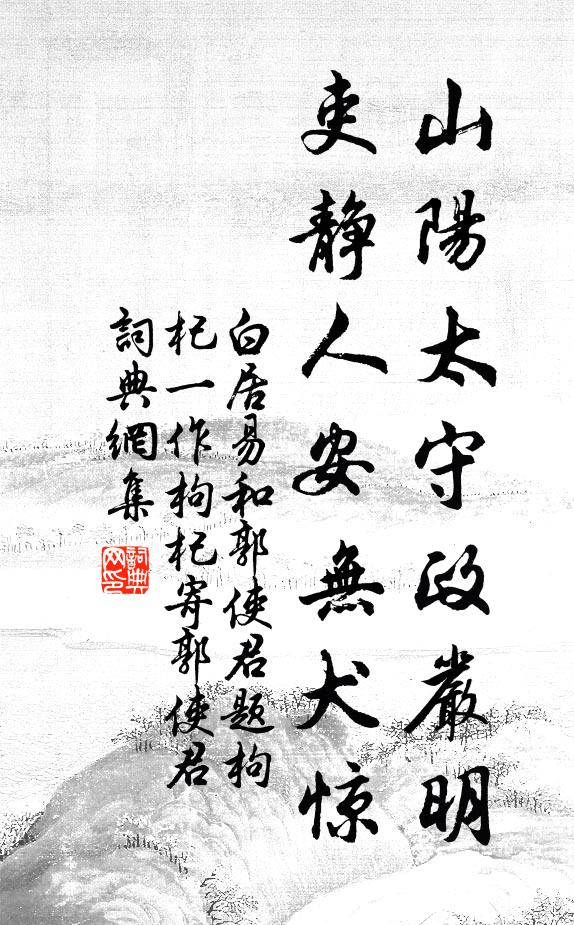 山陽太守政嚴明
吏靜人安無犬惊
白居易和郭使君题枸
杞一作枸杞寄郭使君
詞典網集
詞典
网印